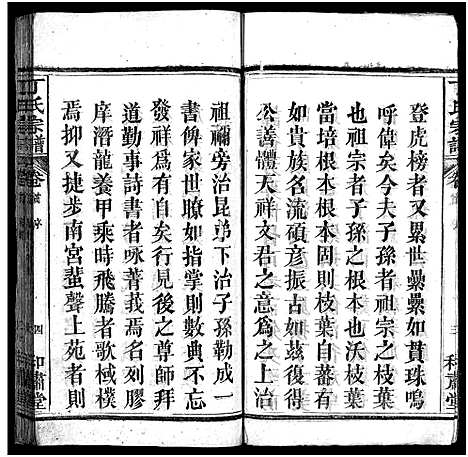 登虎榜者又累世纍纍如貫珠嗚
呼偉矣今夫子孫者祖宗之枝葉
也祖宗者子孫之根本也沃枝葉
當培根本根本固則枝葉自蕃有
如此者故名流碩彥振古如茲我
公善體天祥文君之意爲之上治
祖禰旁治昆弟下治子孫勒成一
書俾家世瞭如指掌則數典不忘
發祥爲有自矣行見後之尊師拜
道勤事詩書者咏菁莪焉名列膠
庠潛龍養甲乘時飛騰者歌棫樸
焉抑又捷步南宮蜚聲上苑者則
丁氏宗譜
卷首
序
四
和肅堂
丁氏宗譜
三
和肅堂